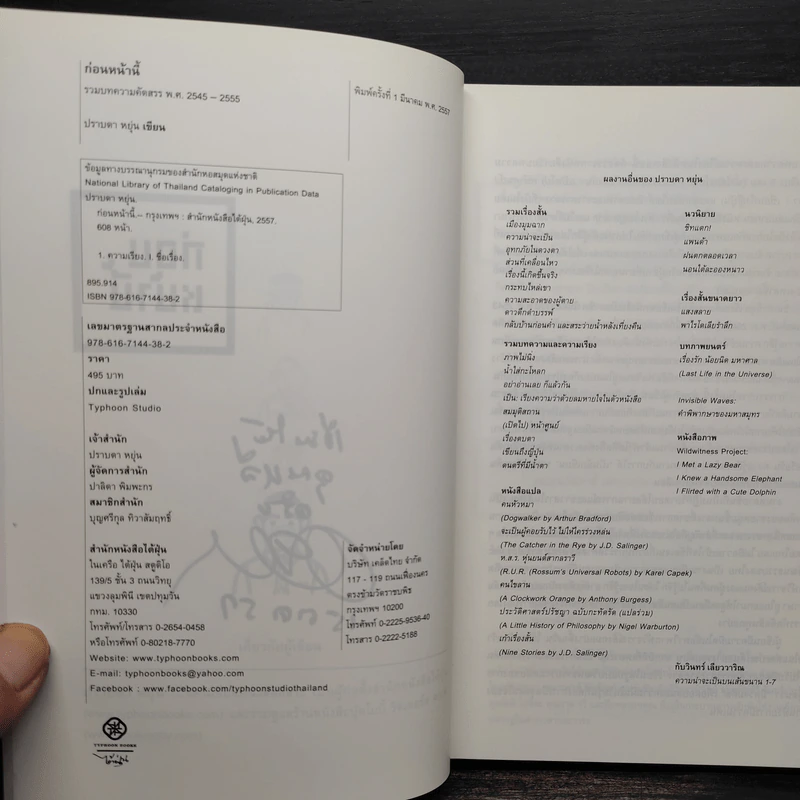 ก่อนหน้านี้
รวมบทความคัดสรร พ.ศ. 2545 – 2555
ปราบดา หยุ่น เขียน
พิมพ์ครั้งที่ 1 มีนาคม พ.ศ. 2557
ข้อมูลทางบรรณานุกรมของสำนักหอสมุดแห่งชาติ
National Library of Thailand Cataloging in Publication Data
ปราบดา หยุ่น.
ก่อนหน้านี้.-- กรุงเทพฯ : สำนักหนังสือไต้ฝุ่น, 2557.
608 หน้า.
1. ความเรียง. I. ชื่อเรื่อง.
895.914
ISBN 978-616-7144-38-2
เลขมาตรฐานสากลประจำหนังสือ
978-616-7144-38-2
ราคา
495 บาท
ปกและรูปเล่ม
Typhoon Studio
เจ้าสำนัก
ปราบดา หยุ่น
ผู้จัดการสำนัก
ปาลิดา พิมพะกร
สมาชิกสำนัก
บุญศรีกุล ทิวาสัมฤทธิ์
สำนักหนังสือไต้ฝุ่น
ในเครือ ไต้ฝุ่น สตูดิโอ
139/5 ชั้น 3 ถนนวิทยุ
แขวงลุมพินี เขตปทุมวัน
กทม. 10330
โทรศัพท์/โทรสาร 0-2654-0458
หรือโทรศัพท์ 0-80218-7770
Website: www.typhoonbooks.com
E-mail: typhoonbooks@yahoo.com
Facebook : www.facebook.com/typhoonstudiothailand
จัดจำหน่ายโดย
บริษัท เคล็ดไทย จำกัด
117 - 119 ถนนเฟื่องนคร
ตรงข้ามวัดราชบพิธ
กรุงเทพฯ 10200
โทรศัพท์ 0-2225-9536-40
โทรสาร 0-2222-5188
TYPHOON BOOKS
ไต้ฝุ่น
ผลงานอื่นของ ปราบดา หยุ่น
รวมเรื่องสั้น
เมืองมุมฉาก
ความน่าจะเป็น
อุทกภัยในดวงตา
ส่วนที่เคลื่อนไหว
เรื่องนี้เกิดขึ้นจริง
กระทบไหล่เขา
ความสะอาดของผู้ตาย
ดาวดึกดำบรรพ์
กลับบ้านก่อนค่ำ และสระว่ายน้ำหลังเที่ยงคืน
รวมบทความและความเรียง
ภาพไม่นิ่ง
น้ำใส่กะโหลก
อย่าอ่านเลย ก็แล้วกัน
เป็น: เรียงความว่าด้วยลมหายใจในตัวหนังสือ
สมมุติสถาน
(เปิดไป) หน้าศูนย์
เรื่องตบตา
เขียนถึงญี่ปุ่น
ดนตรีที่มีน้ำตา
หนังสือแปล
คนหัวหมา
(Dogwalker by Arthur Bradford)
จะเป็นผู้คอยรับไว้ ไม่ให้ใครร่วงหล่น
(The Catcher in the Rye by J.D. Salinger)
ห.ส.ร. หุ่นยนต์สากลราวี
(R.U.R. (Rossum's Universal Robots) by Karel Capek)
คนไขลาน
(A Clockwork Orange by Anthony Burgess)
ประวัติศาสตร์ปรัชญา ฉบับกะทัดรัด (แปลร่วม)
(A Little History of Philosophy by Nigel Warburton)
เก้าเรื่องสั้น
(Nine Stories by J.D. Salinger)
นวนิยาย
ชิทแตก!
แพนด้า
ฝนตกตลอดเวลา
นอนใต้ละอองหนาว
เรื่องสั้นขนาดยาว
แสงสลาย
พาไรโดเลียรำลึก
บทภาพยนตร์
เรื่องรัก น้อยนิด มหาศาล
(Last Life in the Universe)
Invisible Waves:
คำพิพากษาของมหาสมุทร
หนังสือภาพ
Wildwitness Project:
I Met a Lazy Bear
I Knew a Handsome Elephant
I Flirted with a Cute Dolphin
กับวินทร์ เลียววาริณ
ความน่าจะเป็นบนเส้นขนาน 1-7